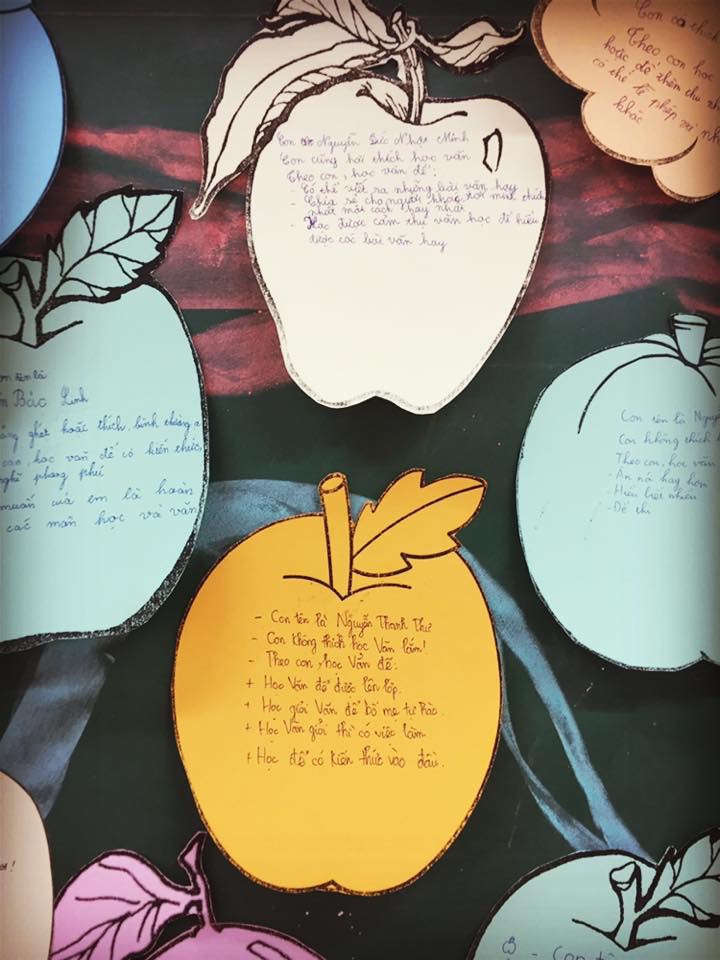 Con Nguyễn Đức Nhật Minh
Con cũng hơi thích học văn
Theo con, học văn để:
- Có thể viết ra những bài văn hay
- Chia sẻ cho người khác, nơi mình thích
nhất một cách hay nhất
- Học được cảm thụ văn học để hiểu
được các bài văn hay
Con
Theo con học
hoặc để thêm
có thể
khác
Con tên là
Bảo Linh
ghét hoặc thích, bình thường
học văn để có kiến thức,
nghĩ phong phú
muốn của em là hoàn
các môn học và văn
Con tên là Nguy
Con không thích
Theo con, học văn
- Ăn nói hay hơn
- Hiểu biết nhiều
- Để thi
- Con tên là Nguyễn Thanh Thư
- Con không thích học Văn lắm!
- Theo con, học Văn để:
+ Học Văn để được lên lớp.
+ Học giỏi Văn để bố mẹ tự hào.
+ Học Văn giỏi thì có việc làm
+ Học để có kiến thức vào đầu.
- Con tê